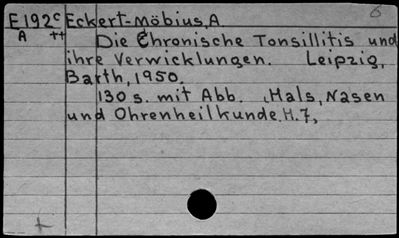 E192c Eckert-Möbius, A
A ++ Die Chronische Tonsillitis und
ihre Verwicklungen. Leipzig,
Barth, 1950.
130 s. mit Abb. (Hals, Nasen
und Ohrenheilkunde. H. 7,